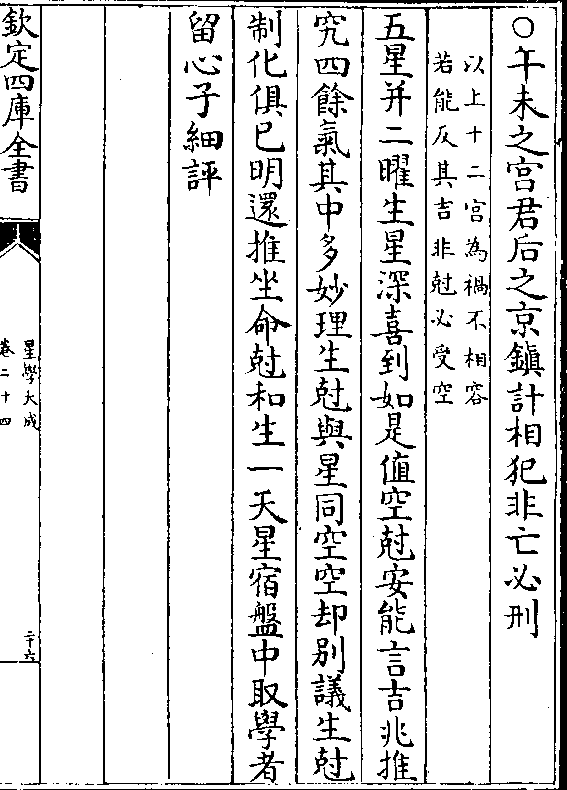 ○午未之宫君后之京鎮計相犯非亡必刑
以上十二宫為禍不相容
若能反其吉非尅必受空
五星并二曜生星深喜到如是值空尅安能言吉兆推
究四餘氣其中多妙理生尅與星同空空却別議生尅
制化俱已明還推坐命尅和生一天星宿盤中取學者
留心子細評
欽定四庫全書
星學大成
卷二十四
二十六